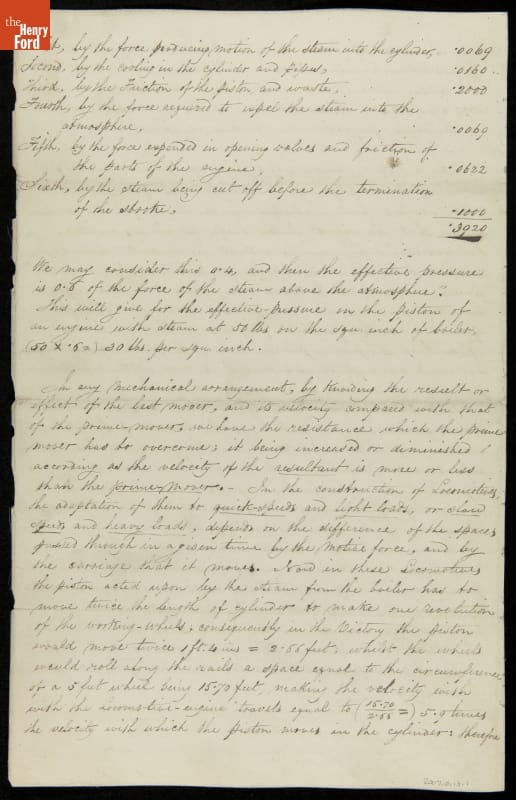 the
Henry
Ford
by the force producing motion of the steam into the cylinder, .0069
Second, by the cooling in the cylinder and pipes, .0160
Third, by the Friction of the piston and waste, .2000
Fourth, by the force required to expel the steam into the
atmosphere, .0069
Fifth, by the force expended in opening valves and friction of
the parts of the engine, .0622
Sixth, by the steam being cut off before the termination
of the stroke, .1000
.3920
We may consider this 0.4, and then the effective pressure
is 0.6 of the force of the steam above the atmosphere".
This will give for the effective-pressure on the piston of
an engine with steam at 50 lbs on the squ inch of boiler,
(50 x .6=) 30 lbs. per squ inch.
In any mechanical arrangement, by knowing the result or
effect of the last mover, and its velocity compared with that
of the prime-mover, we have the resistance which the prime
mover has to overcome; it being increased or diminished
according as the velocity of the resultant is more or less
than the prime-mover. – In the construction of Locomotives,
the adaptation of them to quick-speeds and light loads, or slow
speeds and heavy loads, depends on the difference of the spaces
passed through in a given time by the motive force, and by
the carriage that it moves. Now in these Locomotives
the piston acted upon by the steam from the boiler has to
move twice the length of cylinder to make one revolution
of the working-wheels; consequently in the Victory the piston
would move twice 1 ft. 4 ins = 2.66 feet; whilst the wheels
would roll along the rails a space equal to the circumference
of a 5 feet wheel being 15.70 feet, making the velocity with
with the Locomotive-engine travels equal to (15.70/2.66=) 5.9 times
the velocity with which the piston moves in the cylinder: therefore